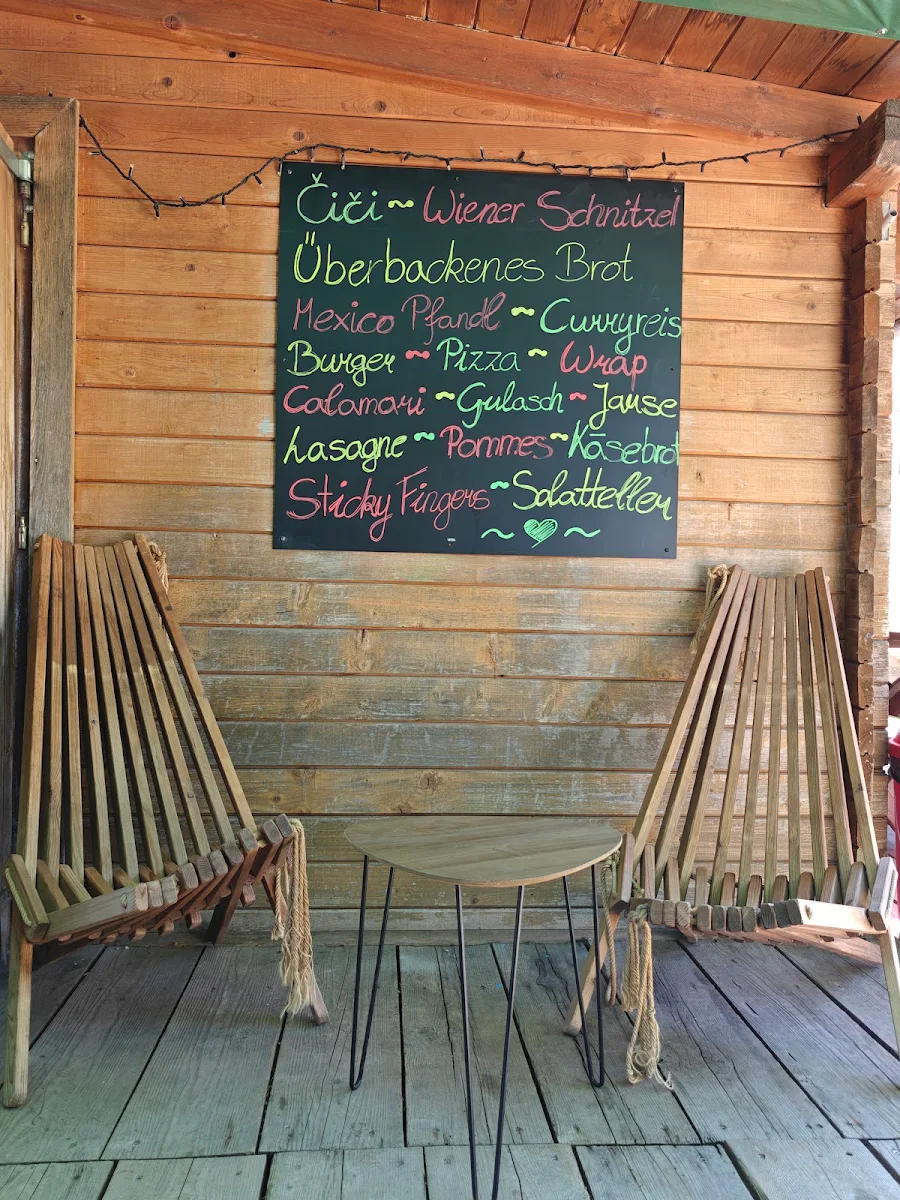 Čiči ~ Wiener Schnitzel
Überbackenes Brot
Mexico Pfandl ~ Curryreis
Burger ~ Pizza ~ Wrap
Calamari ~ Gulasch ~ Jause
Lasagne ~ Pommes ~ Käsebrot
Sticky Fingers ~ Salatteller